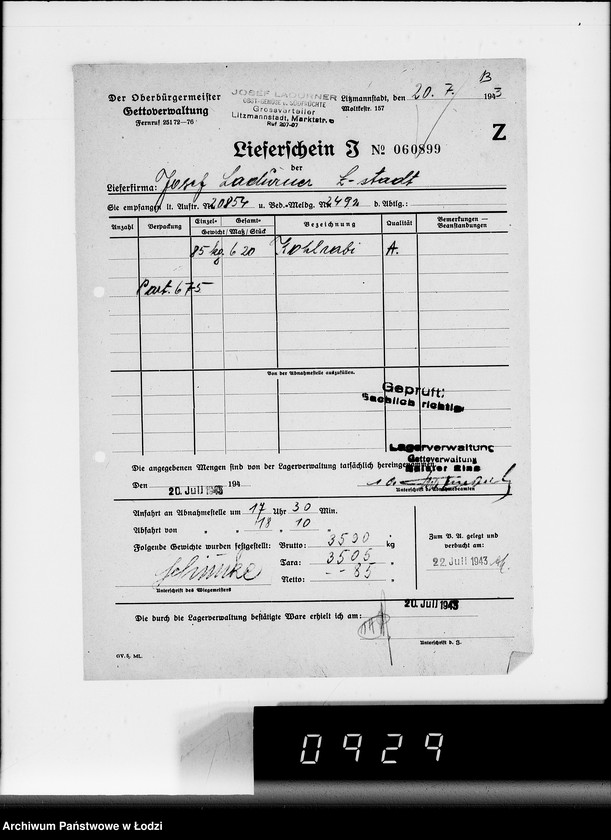 13
Der Oberbürgermeister
Gettoverwaltung
Fernruf 25172—76
JOSEF LADURNER
OBST-GEMÜSE u. SÜDFRÜCHTE
Grossverteiler
Litzmannstadt, Marktstr. 6
Ruf 207-07
Litzmannstadt, den 20. 7. 1943
Moltkestr. 157
Z
Lieferschein J № 060899
der
Lieferfirma: Josef Ladurner L-stadt
Sie empfangen lt. Auftr. Nr. 20854 u. Bed.-Meldg. Nr. 2492 d. Abtlg.:
Anzahl Verpackung Einzel- Gesamt- Bezeichnung Qualität Bemerkungen —
Gewicht / Maß / Stück Beanstandungen
85 kg 6 20 Kohlrabi A.
Part. 675
Von der Abnahmestelle auszufüllen.
Geprüft:
Sachlich richtig
Lagerverwaltung
Gettoverwaltung
Die angegebenen Mengen sind von der Lagerverwaltung tatsächlich hereingenommen
Den 20. Juli 1943 194
Unterschrift d. Abnahmebeamten
Anfahrt an Abnahmestelle um 17 Uhr 30 Min.
Abfahrt von " " 18 " 10 "
Folgende Gewichte wurden festgestellt: Brutto: 3590 kg
Tara: 3505 "
Netto: -- 85 "
Unterschrift des Wiegemeisters
Zum B. A. gelegt und
verbucht am:
22. Juli 1943
20. Juli 1943
Die durch die Lagerverwaltung bestätigte Ware erhielt ich am:
Unterschrift d. J.
GV. H. ML.
0929
Archiwum Państwowe w Łodzi